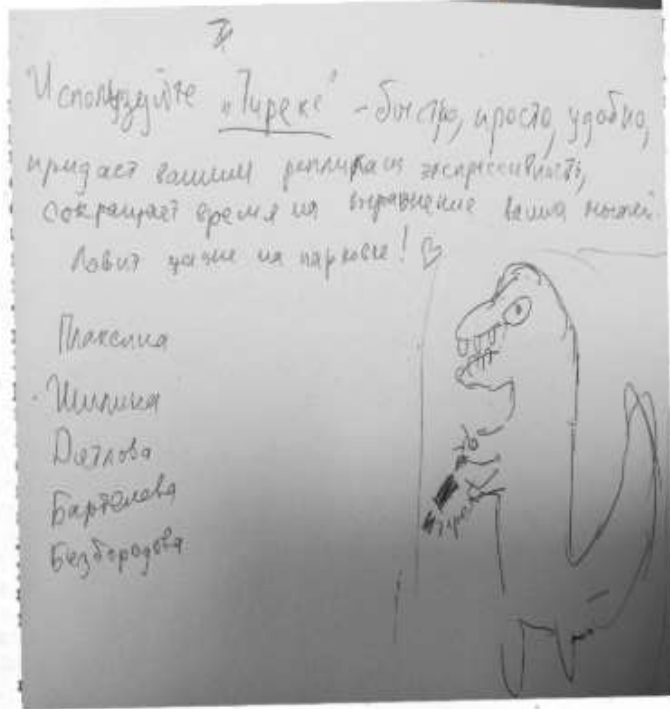 Используйте „Тирекс" - быстро, просто, удобно,
придаёт вашим репликам экспрессивность,
сокращает время на выражение ваших мыслей
Ловит на парковке! ♡
Плаксина
Шипика
Дятлова
Бартенева
Безбородова